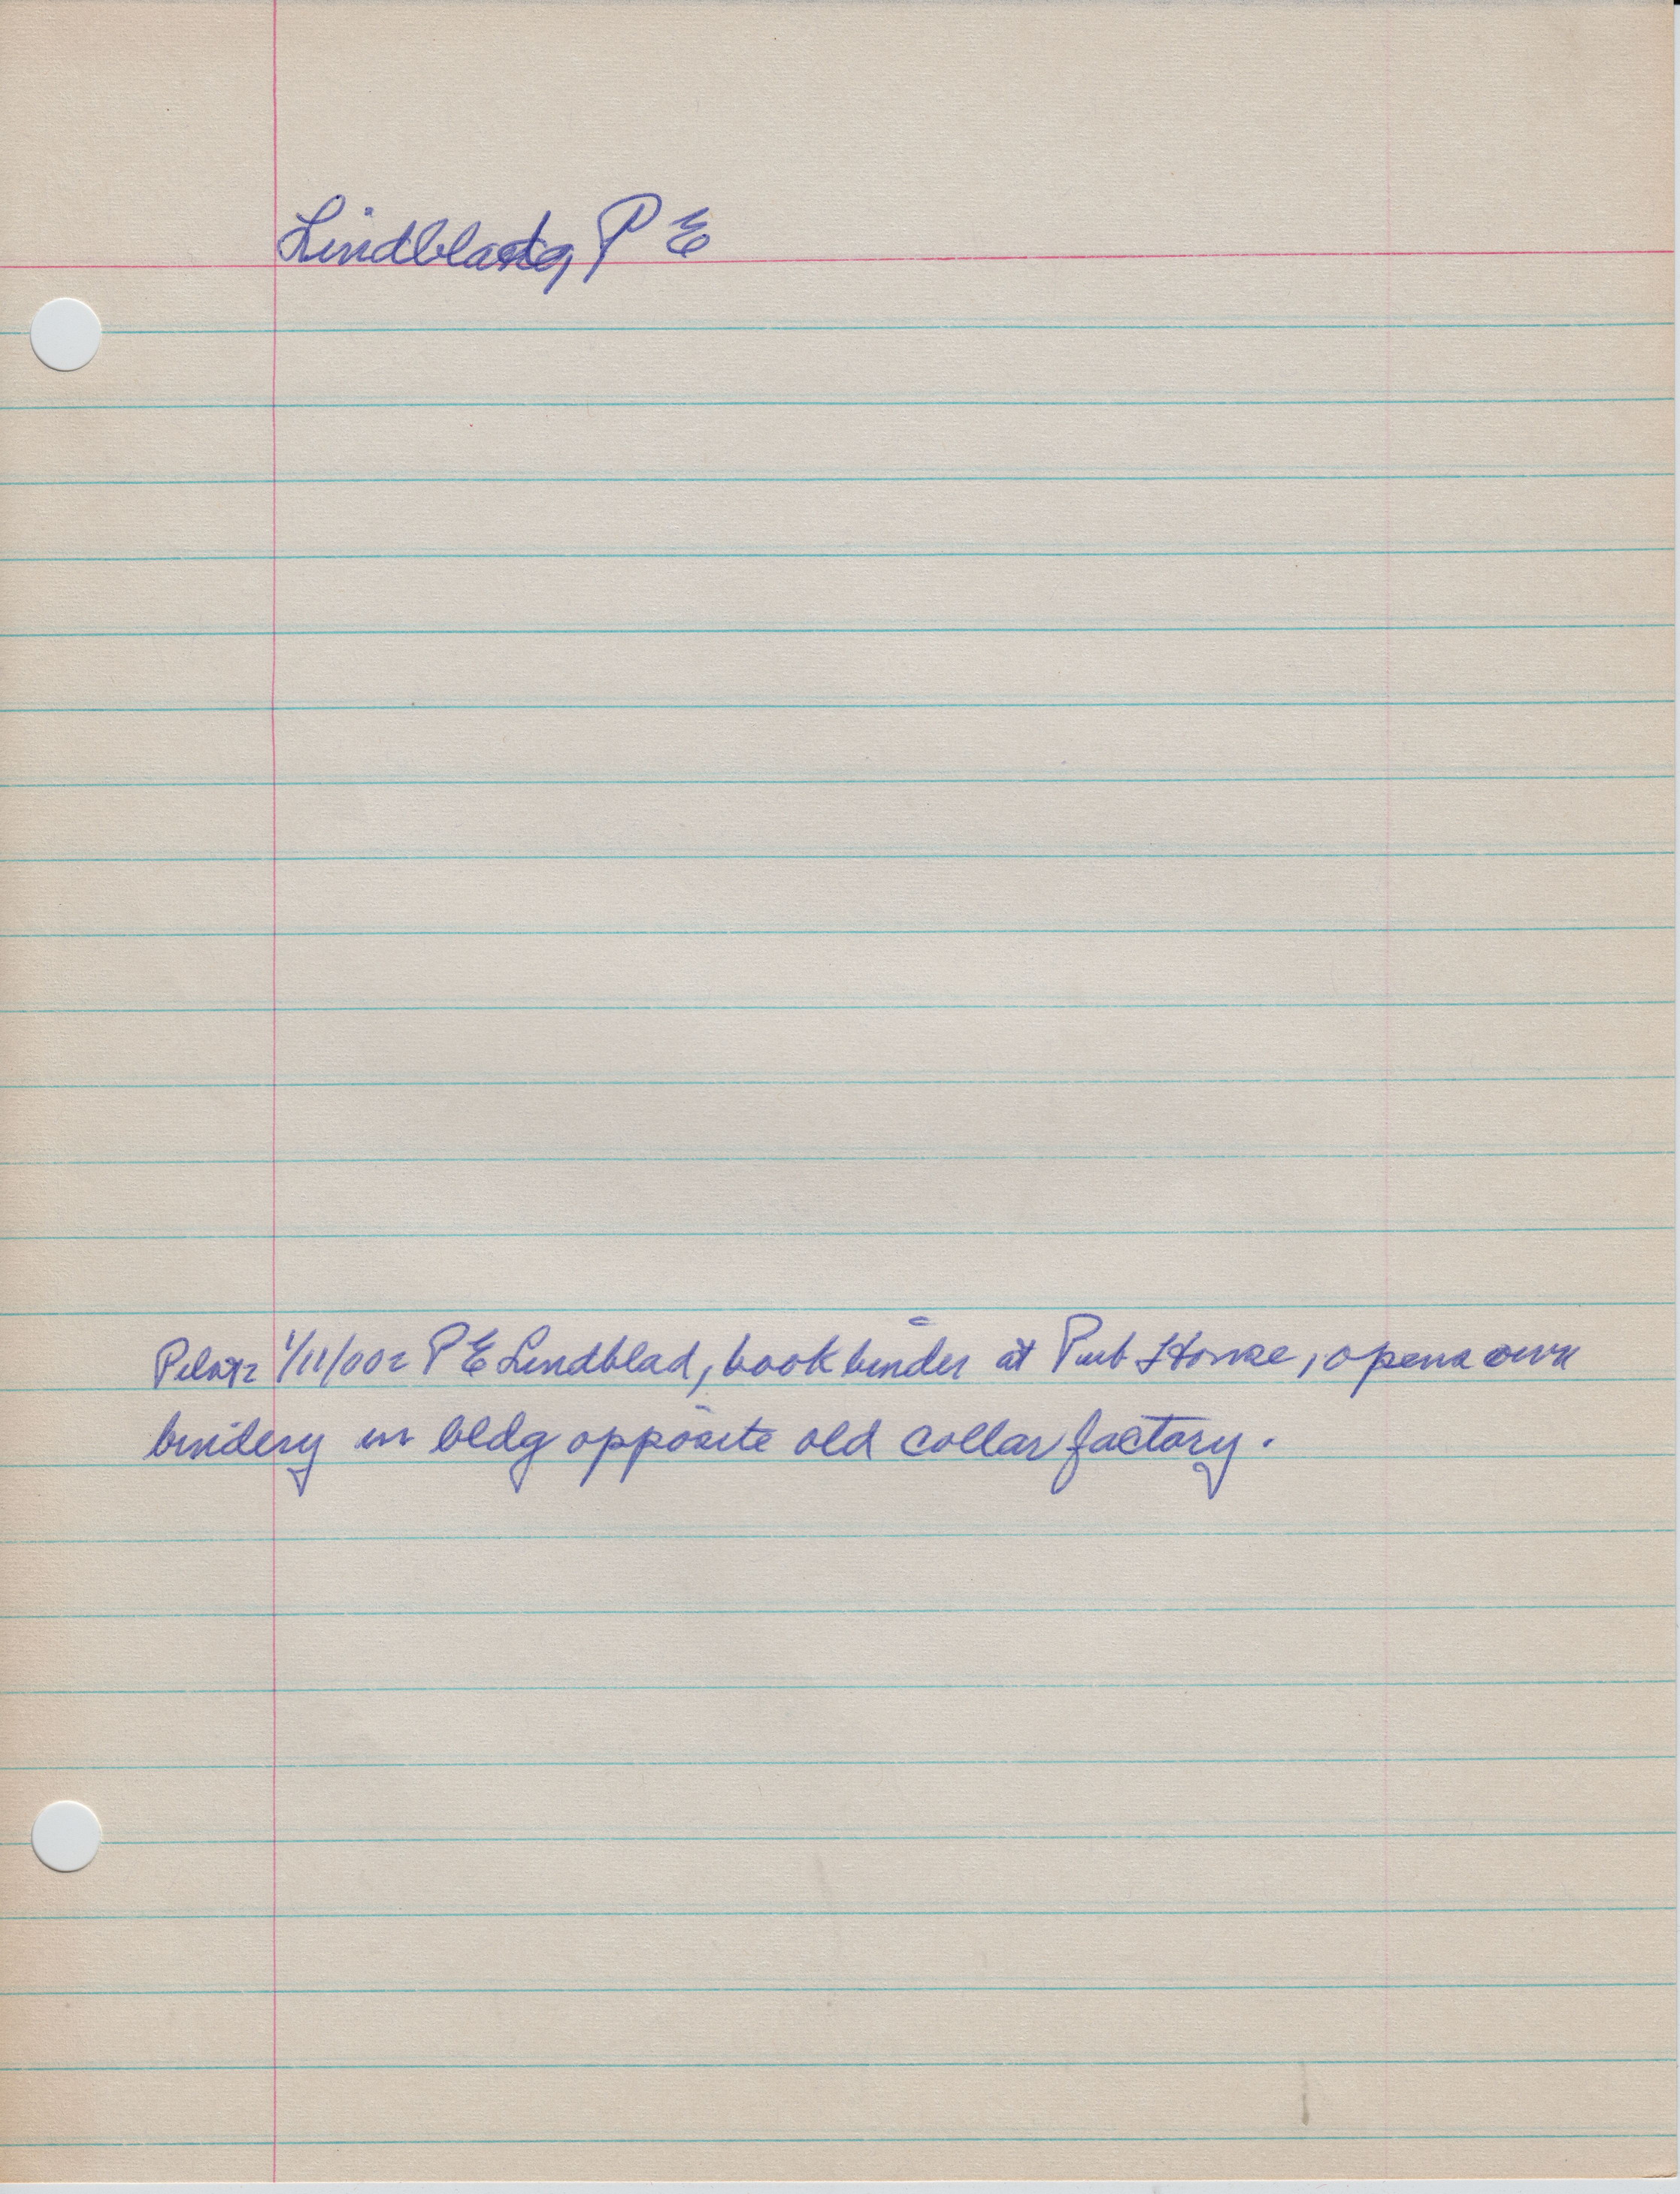 Lindblad, P E
1/11/002 P E Lindblad, book binder at Pub House, opens own
bindery in bldg opposite old collar factory.